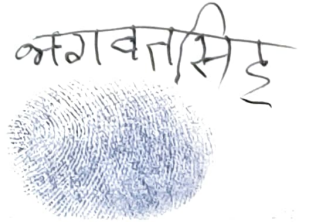 भगवतसिह